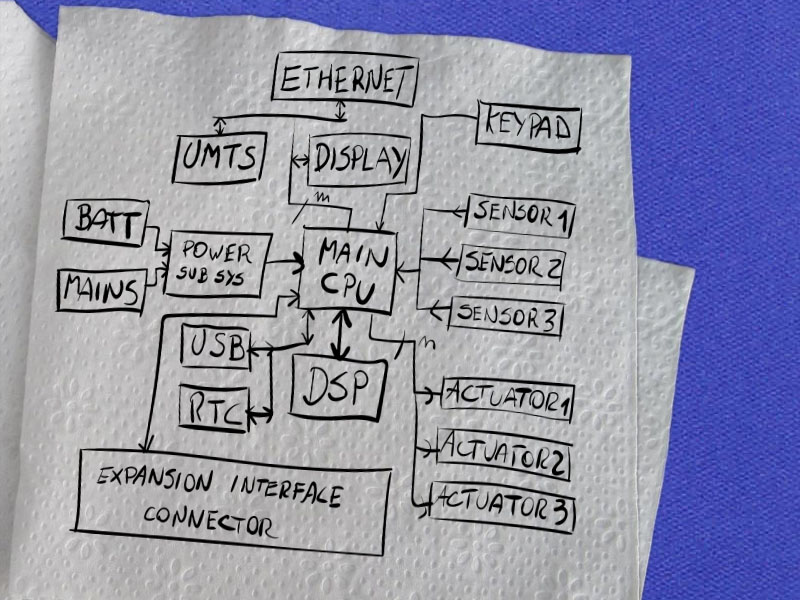 ETHERNET
KEYPAD
UMTS
DISPLAY
m
BATT
SENSOR 1
POWER
SUB SYS
MAIN
CPU
SENSOR 2
MAINS
SENSOR 3
USB
n
DSP
RTC
ACTUATOR 1
ACTUATOR 2
EXPANSION INTERFACE
CONNECTOR
ACTUATOR 3